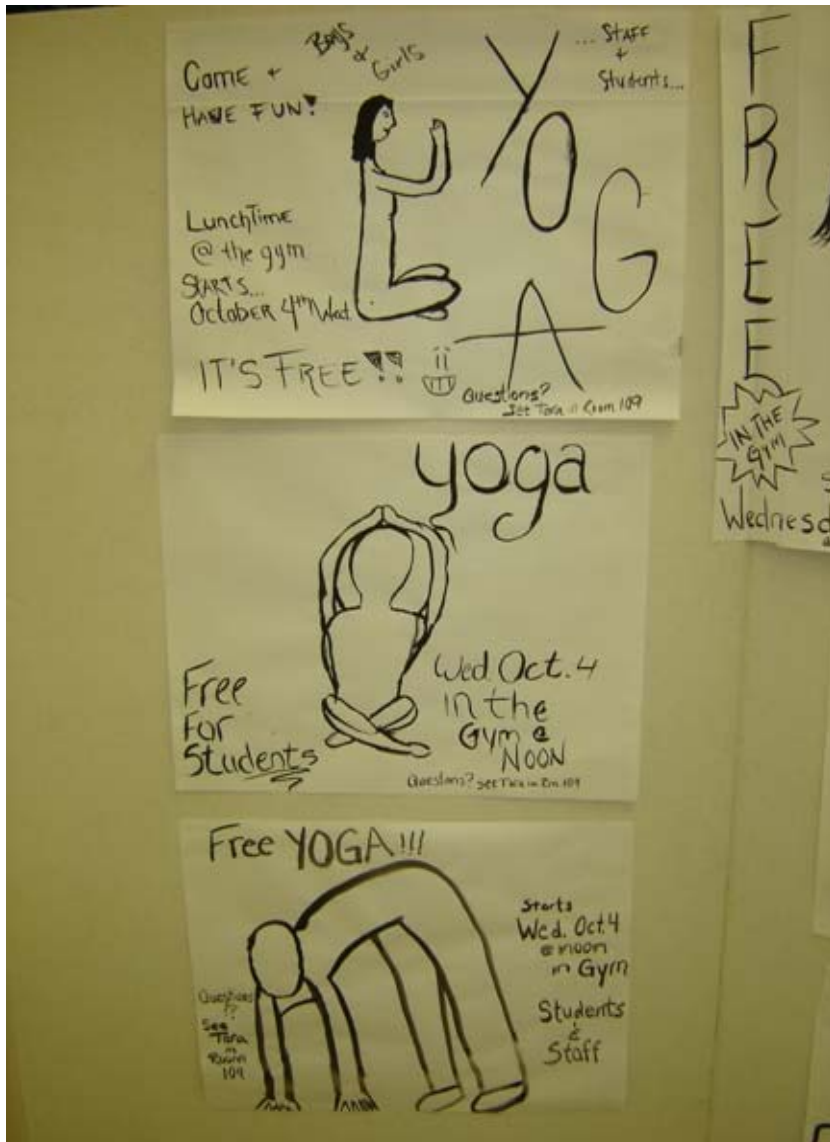 Come +
HAVE FUN!
Boys
&
Girls
... STAFF
+
Students...
YOGA
LunchTime
@ the gym
STARTS...
OCTOBER 4th Wed.
IT'S FREE!!
Questions?
See Tara in Room 109
yoga
Free
For
Students
Wed. Oct. 4
in the
Gym @
NOON
Questions? See Tara in Rm. 109
Free YOGA!!!
Starts
Wed. Oct. 4
@ noon
in Gym
Students
&
Staff
Questions
!?
See
Tara
in
Room
109
FREE
IN THE
GYM